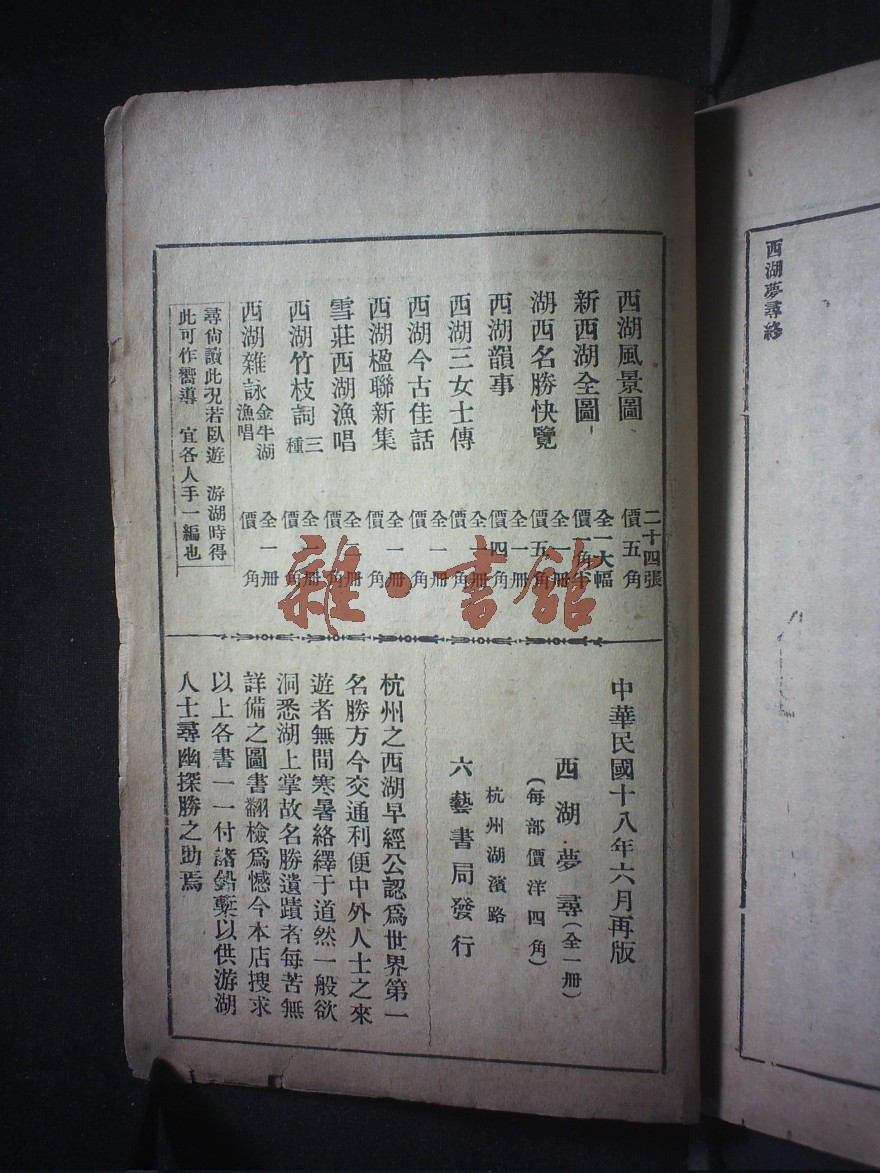 西湖夢尋終
西湖風景圖
二十四張
價五角
新西湖全圖
全一大幅
價一角半
湖西名勝快覽
全一册
價五角
西湖韻事
全一册
價四角
西湖三女士傳
全一册
價一角
西湖今古佳話
全一册
價一角
西湖楹聯新集
全一册
價一角
雪莊西湖漁唱
全一册
價角
西湖竹枝詞三種
全册
價角
西湖雜詠金牛湖漁唱
全一册
價一角
尋尙讀此況若臥遊 游湖時得
此可作嚮導 宜各人手一編也
中華民國十八年六月再版
西湖夢尋(全一册)
(每部價洋四角)
杭州湖濱路
六藝書局發行
杭州之西湖早經公認爲世界第一
名勝方今交通利便中外人士之來
遊者無間寒暑絡繹于道然一般欲
洞悉湖上掌故名勝遺蹟者每苦無
詳備之圖書翻檢爲憾今本店搜求
以上各書一一付諸鉛槧以供游湖
人士尋幽探勝之助焉
雜·書館